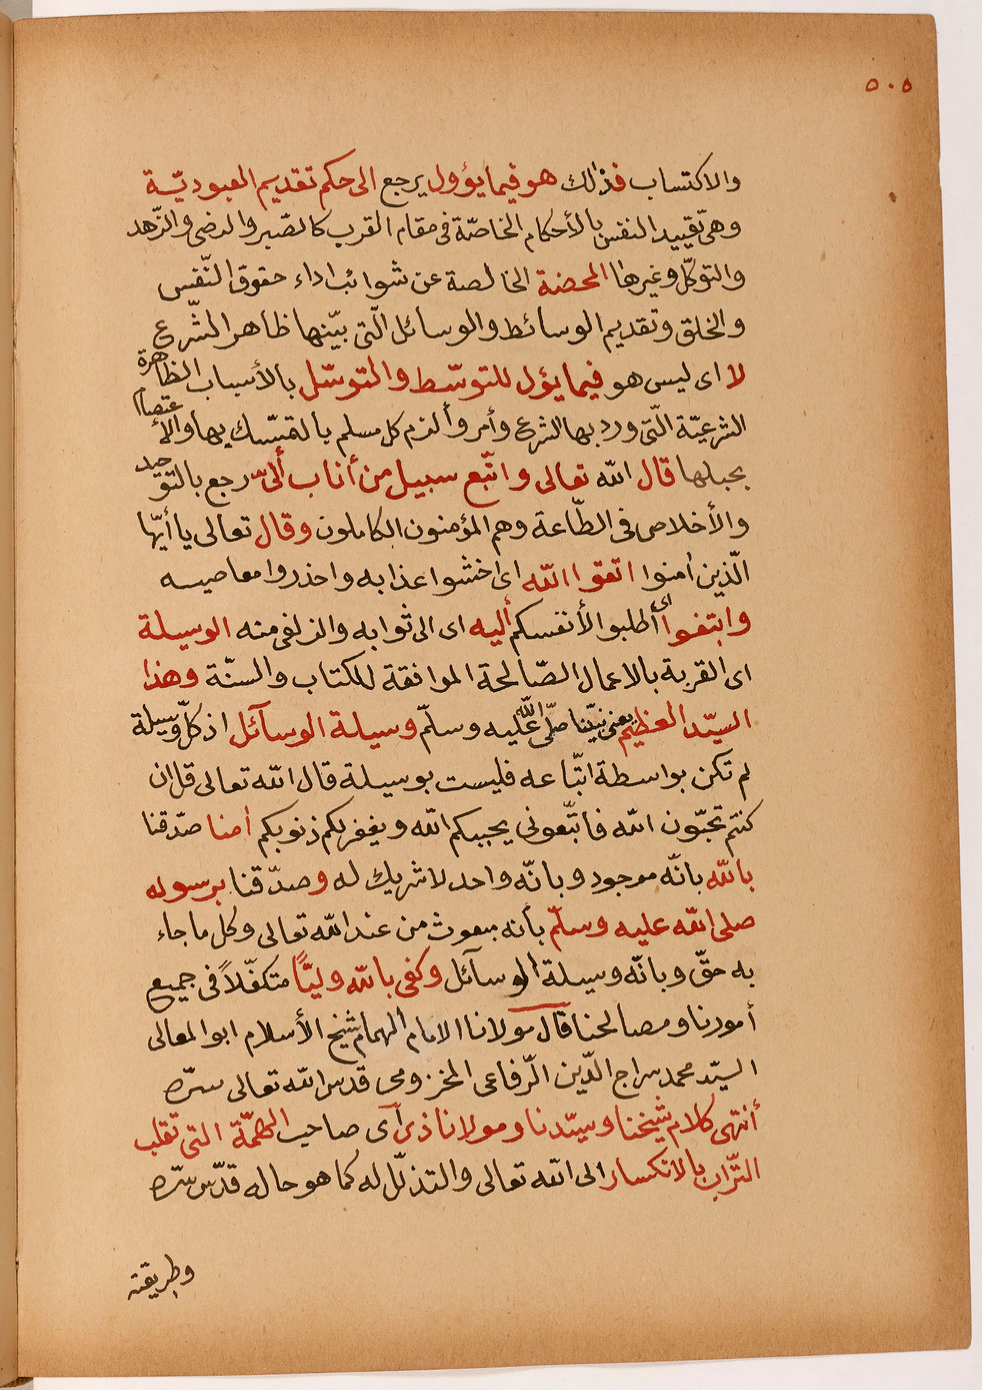 ٥٠٥
والاكتساب فذلك هو فيما يؤول يرجع الى حكم تقديم العبوديّة
وهى تقييد النفس بالأحكام الخاصّة فى مقام القرب كالصّبر والرضى والزّهد
والتوكّل وغيرها المحضة الخالصة عن شوائب اداء حقوق النّفس
والخلق وتقديم الوسائط والوسائل الّتى بيّنها ظاهر الشّرع
لا اى ليس هو فيما يؤل للتوسّط والتوسّل بالأسباب الظاهرة
الشرعيّة الّتى ورد بها الشرع وأمر وألزم كل مسلم بالتمسّك بها والأعتصام
بحبلها قال الله تعالى واتّبع سبيل من أناب ألىّ رجع بالتوحيد
والأخلاص فى الطّاعة وهم المؤمنون الكاملون وقال تعالى يا أيّها
الّذين امنوا اتقوا الله اى اخشوا عذابه واحذروا معاصيه
وابتغوا اى أطلبوا لأنفسكم أليه اى الى ثوابه والزلفى منه الوسيلة
اى القربة بالاعمال الصّالحة الموافقة للكتاب والسنّة وهذا
السيّد العظيم يعنى نبيّنا صلّى الله عليه وسلّم وسيلة الوسآئل اذ كلّ وسيلة
لم تكن بواسطة اتّباعه فليست بوسيلة قال الله تعالى قل ان
كنتم تحبّون الله فاتّبعونى يحببكم الله ويغفر لكم ذنوبكم أمنا صدّقنا
بالله بانّه موجود وبانّه واحد لا شريك له وصدّقنا برسوله
صلى الله عليه وسلّم بأنه مبعوث من عند الله تعالى وكل ما جاء
به حقّ وبانّه وسيلة الوسآئل وكفى بالله وليّاً متكفّلاً فى جميع
أمورنا ومصالحنا قال مولانا الامام الهمام شيخ الأسلام ابو المعالى
السيّد محمد سراج الدّين الرّفاعى المخزومى قدس الله تعالى سرّه
أنتهى كلام شيخنا وسيّدنا ومولانا ذى آى صاحب الهمّة التى تقلب
التّراب بالانكسار الى الله تعالى والتذلّل له كما هو حاله قدّس سرّه
وطريقته